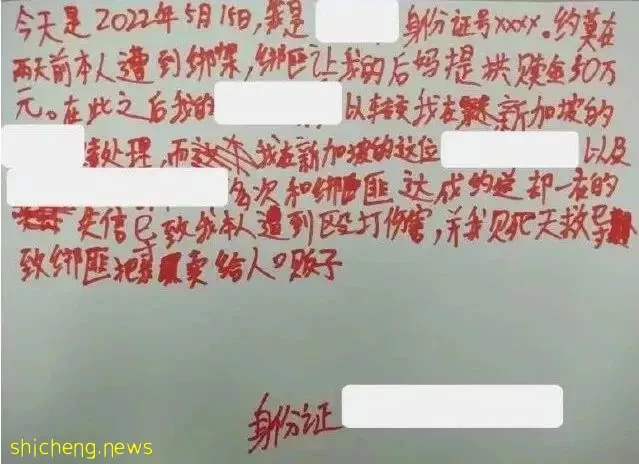 今天是2022年5月15日,我是 身份证号xxxx。约莫在
两天前本人遭到绑架,绑匪让我的后妈提供赎金50万
元。在此之后我的 以转交我在 新加坡的
处理,而 我在新加坡的这位 以及
多次和绑匪达成约定却一在的
失信已致我本人遭到殴打伤害,并我见死不救导
致绑匪把我卖给人口贩子
身份证
shicheng.news